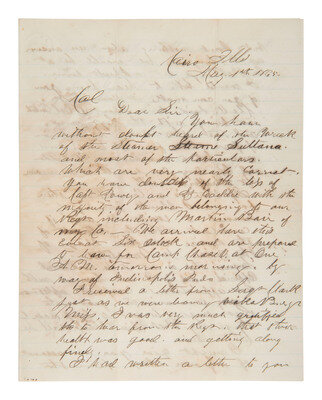 Cairo Ills
May 1st 1865.
Col
Dear Sir You have
without doubt heard of the Wreck
of the Steamer Sultana
and most of the particulars.
Which are very nearly Correct.
You have doubtless of the loss of
Capt and Lt with the
majority of the men belonging to our
Regt including Martin of
my Co. We arrived here this
about Six oclock and are prepared
to leave for Camp Chase at One
A.M. tomorrow morning by
way of
I received a letter from Sergt
just as we were leaving
Miss. I was very much gratified
to hear from the Regt. that their
health was good and getting along
finely.
I had written a letter to you